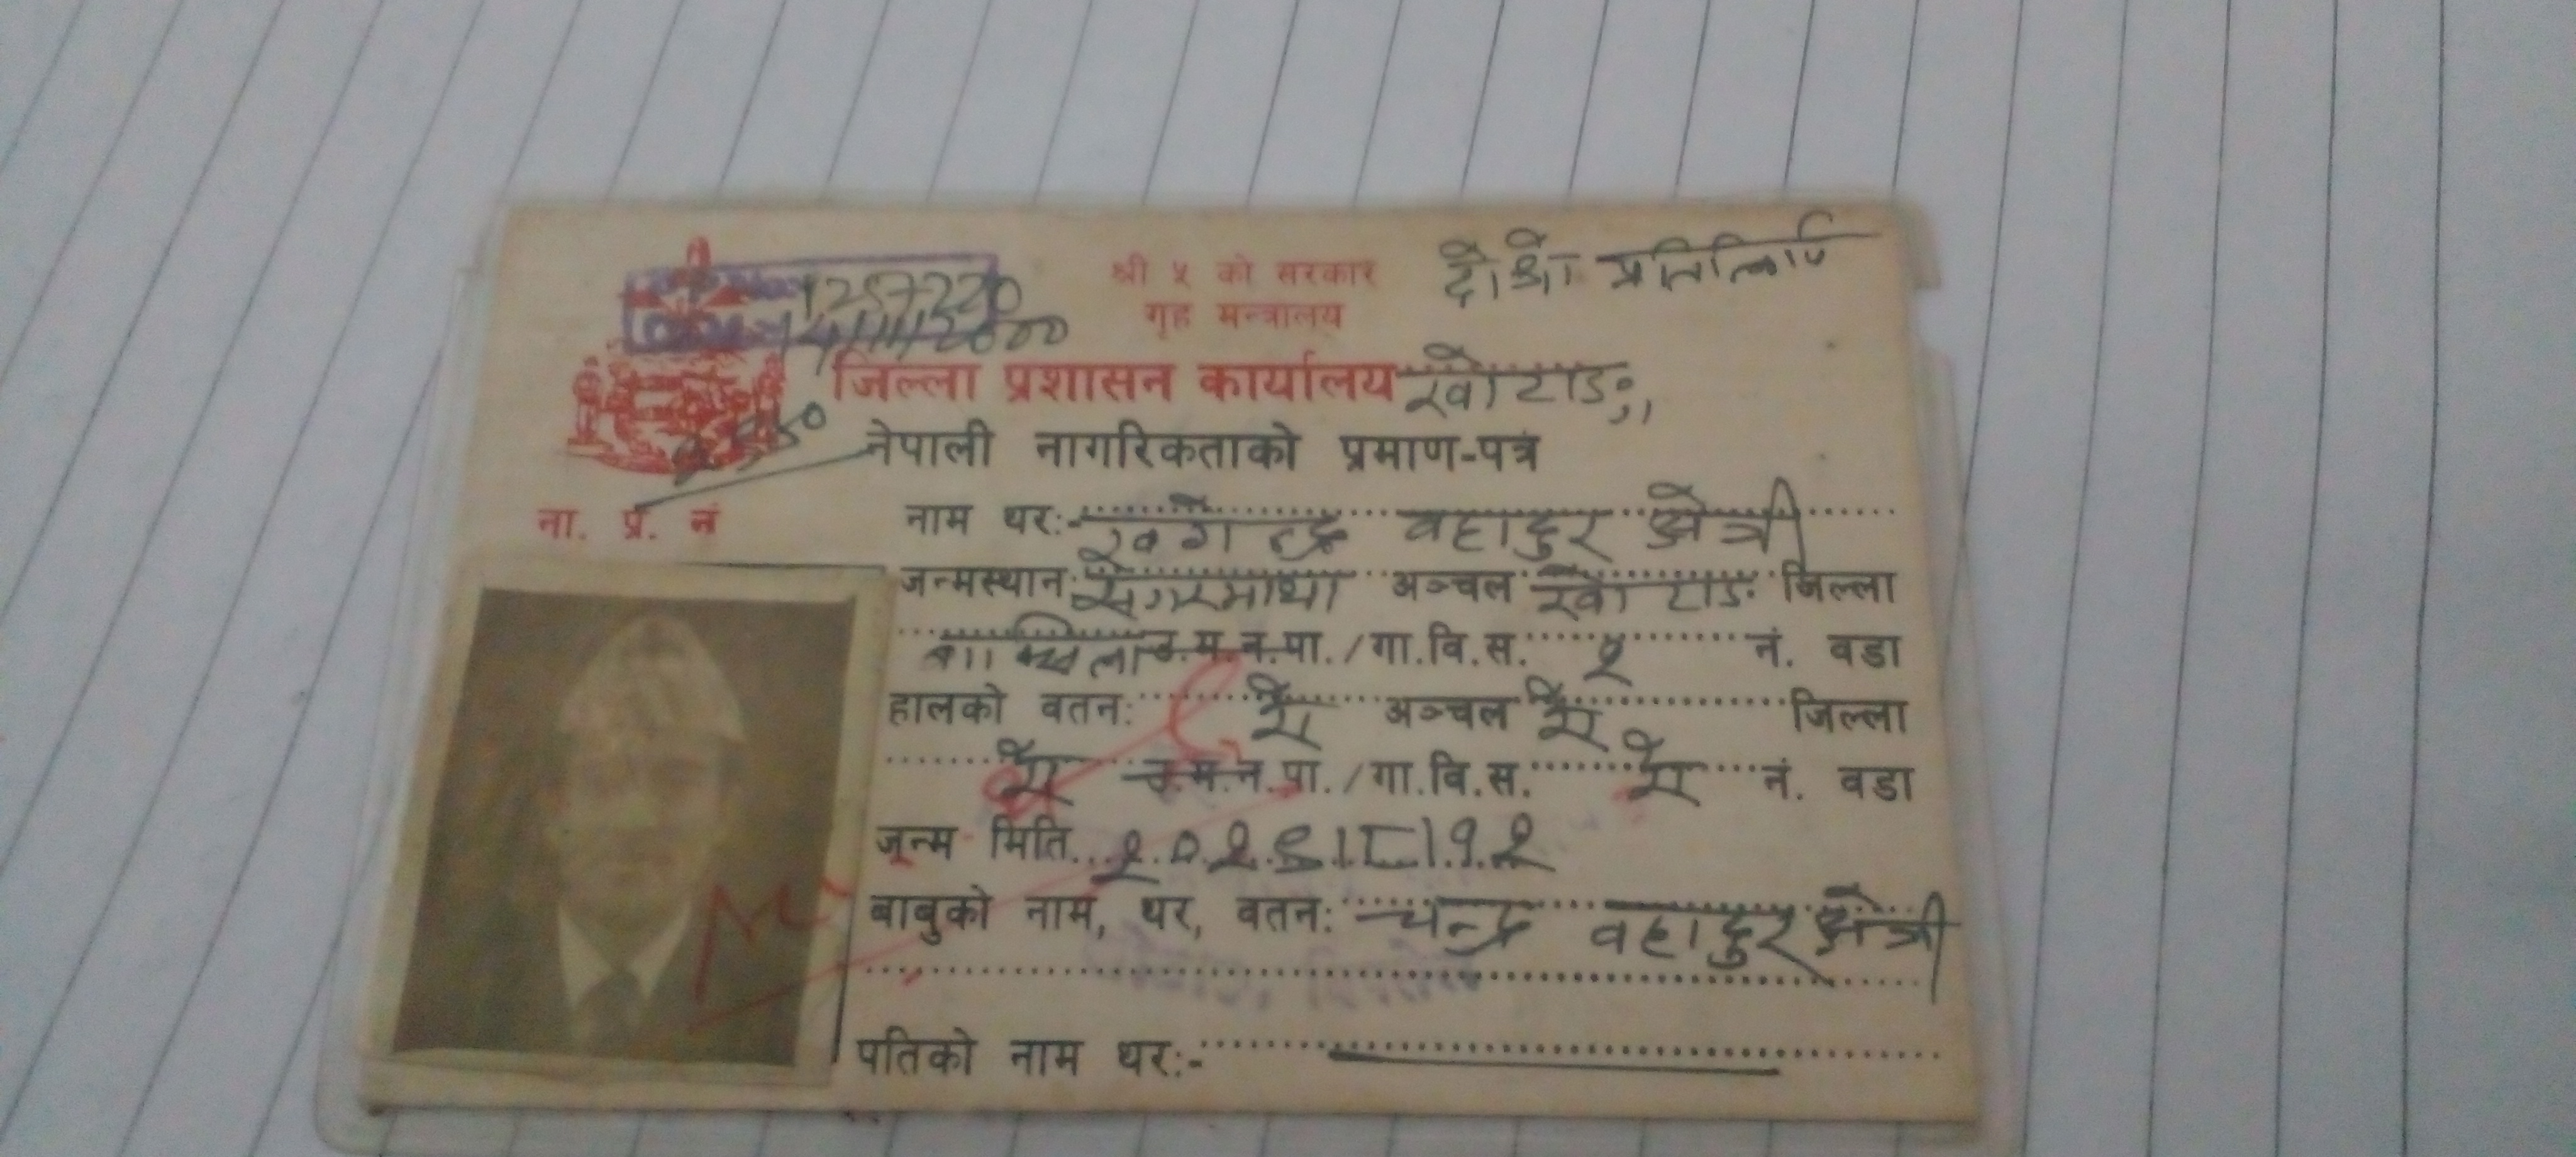 श्री ५ को सरकार
गृह मन्त्रालय
दोश्रो प्रतिलिपि
1257220
14/11/2000
जिल्ला प्रशासन कार्यालय खोटाङ
नेपाली नागरिकताको प्रमाण-पत्र
ना. प्र. नं
नाम थर:- खगेन्द्र वहादुर क्षेत्री
जन्मस्थान: सगरमाथा अञ्चल खोटाङ जिल्ला
उ.म.न.पा./गा.वि.स. ५ नं. वडा
हालको वतन: ऐ अञ्चल ऐ जिल्ला
ऐ उ.म.न.पा./गा.वि.स. ऐ नं. वडा
जन्म मिति
बाबुको नाम, थर, वतन: चन्द्र वहादुर क्षेत्री
पतिको नाम थर:-